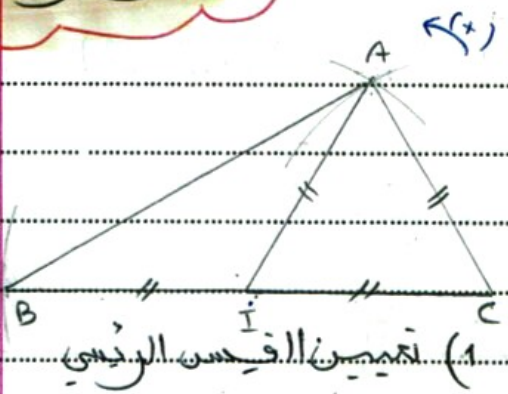 (+)
A
B I C
1) تعيين القيس الرئيسي